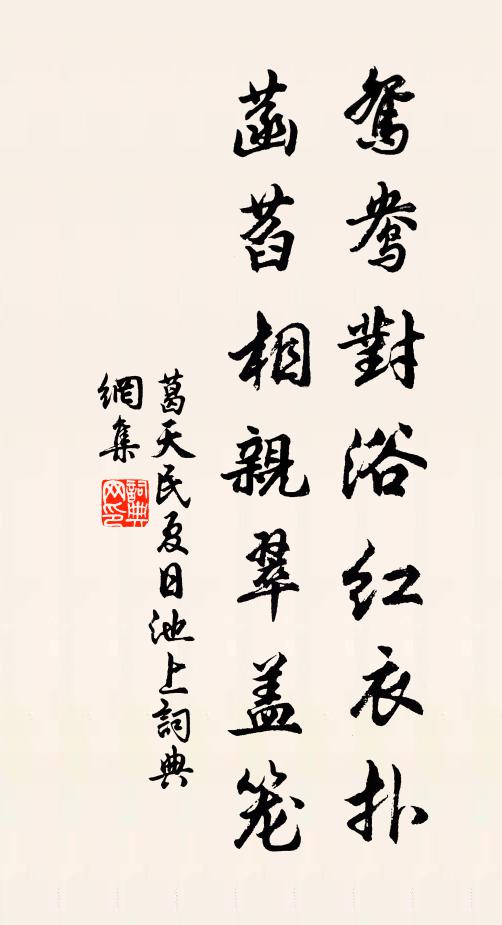 鴛鴦對浴紅衣扑
菡萏相親翠盖笼
葛天民夏日池上詞典
網集
詞典网印